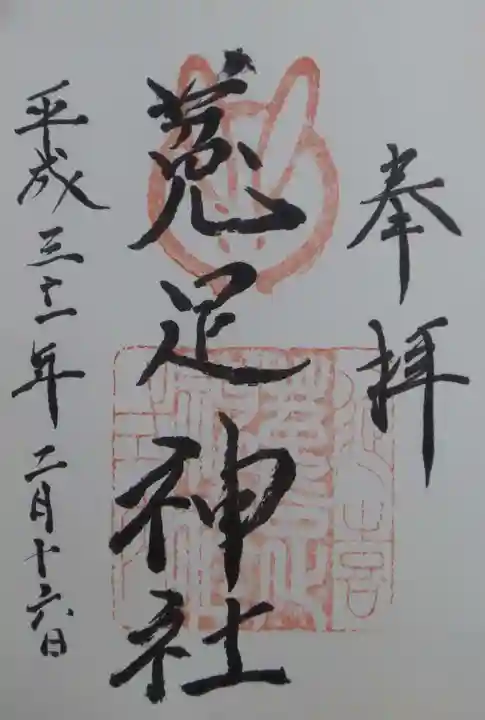 奉拝
菟足神社
平成三十一年二月十六日